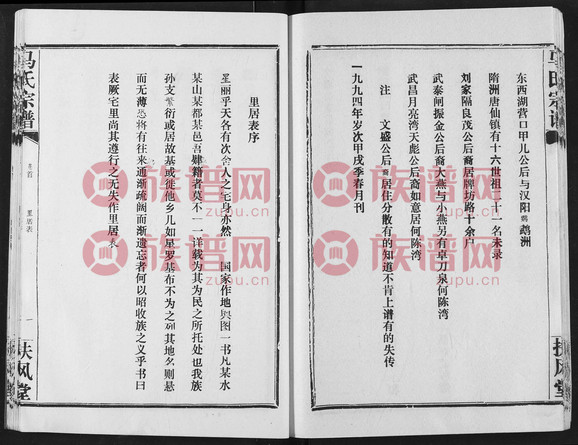 东西湖营口甲儿公后与汉阳鹦鹉洲
隋洲唐仙镇有十六世祖二十一名未录
刘家隔良茂公后裔居牌坊路十余户
武泰闸振金公后裔大燕与小燕另有卓刀泉何陈湾
武昌月亮湾天彪公后裔如意居何陈湾
注 文盛公后裔居住分散有的知道不肯上谱有的失传
一九九四年岁次甲戌季春月刊
马氏宗谱
扶风堂
里居表序
星丽乎天各有次舍人之宅身亦然 国家作地舆图一书凡某水
某山某都某邑吾肄籍者莫不一一详载为其为民之所托处也我族
孙支繁衍或居故基或徙他乡儿如星罗基布不为之列其地名则悬
而无薄恐将有往来通渐疏阔而渐遗忘者何以昭收族之义乎书曰
表厥宅里尚其遵行之无失作里居表
马氏宗谱
卷首
里居表
一
扶风堂
族谱网
zupu.cn